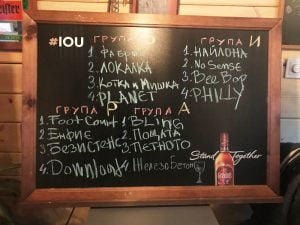 #IOU
ГРУПА
1. Фабри
2. ЛОКАЛКА
3. Котка и Мишка
4. PLANET
ГРУПА И
1. НАЙЛОНА
2. No Sense
3. Bee Bop
4. PHILLY
ГРУПА Р
1. Foot Court
2. Енфие
3. Безистена
4. Download
ГРУПА А
1. BLING
2. ПОЩАТА
3. ПЕТНОТО
4. Железо Бетон
Stand Together